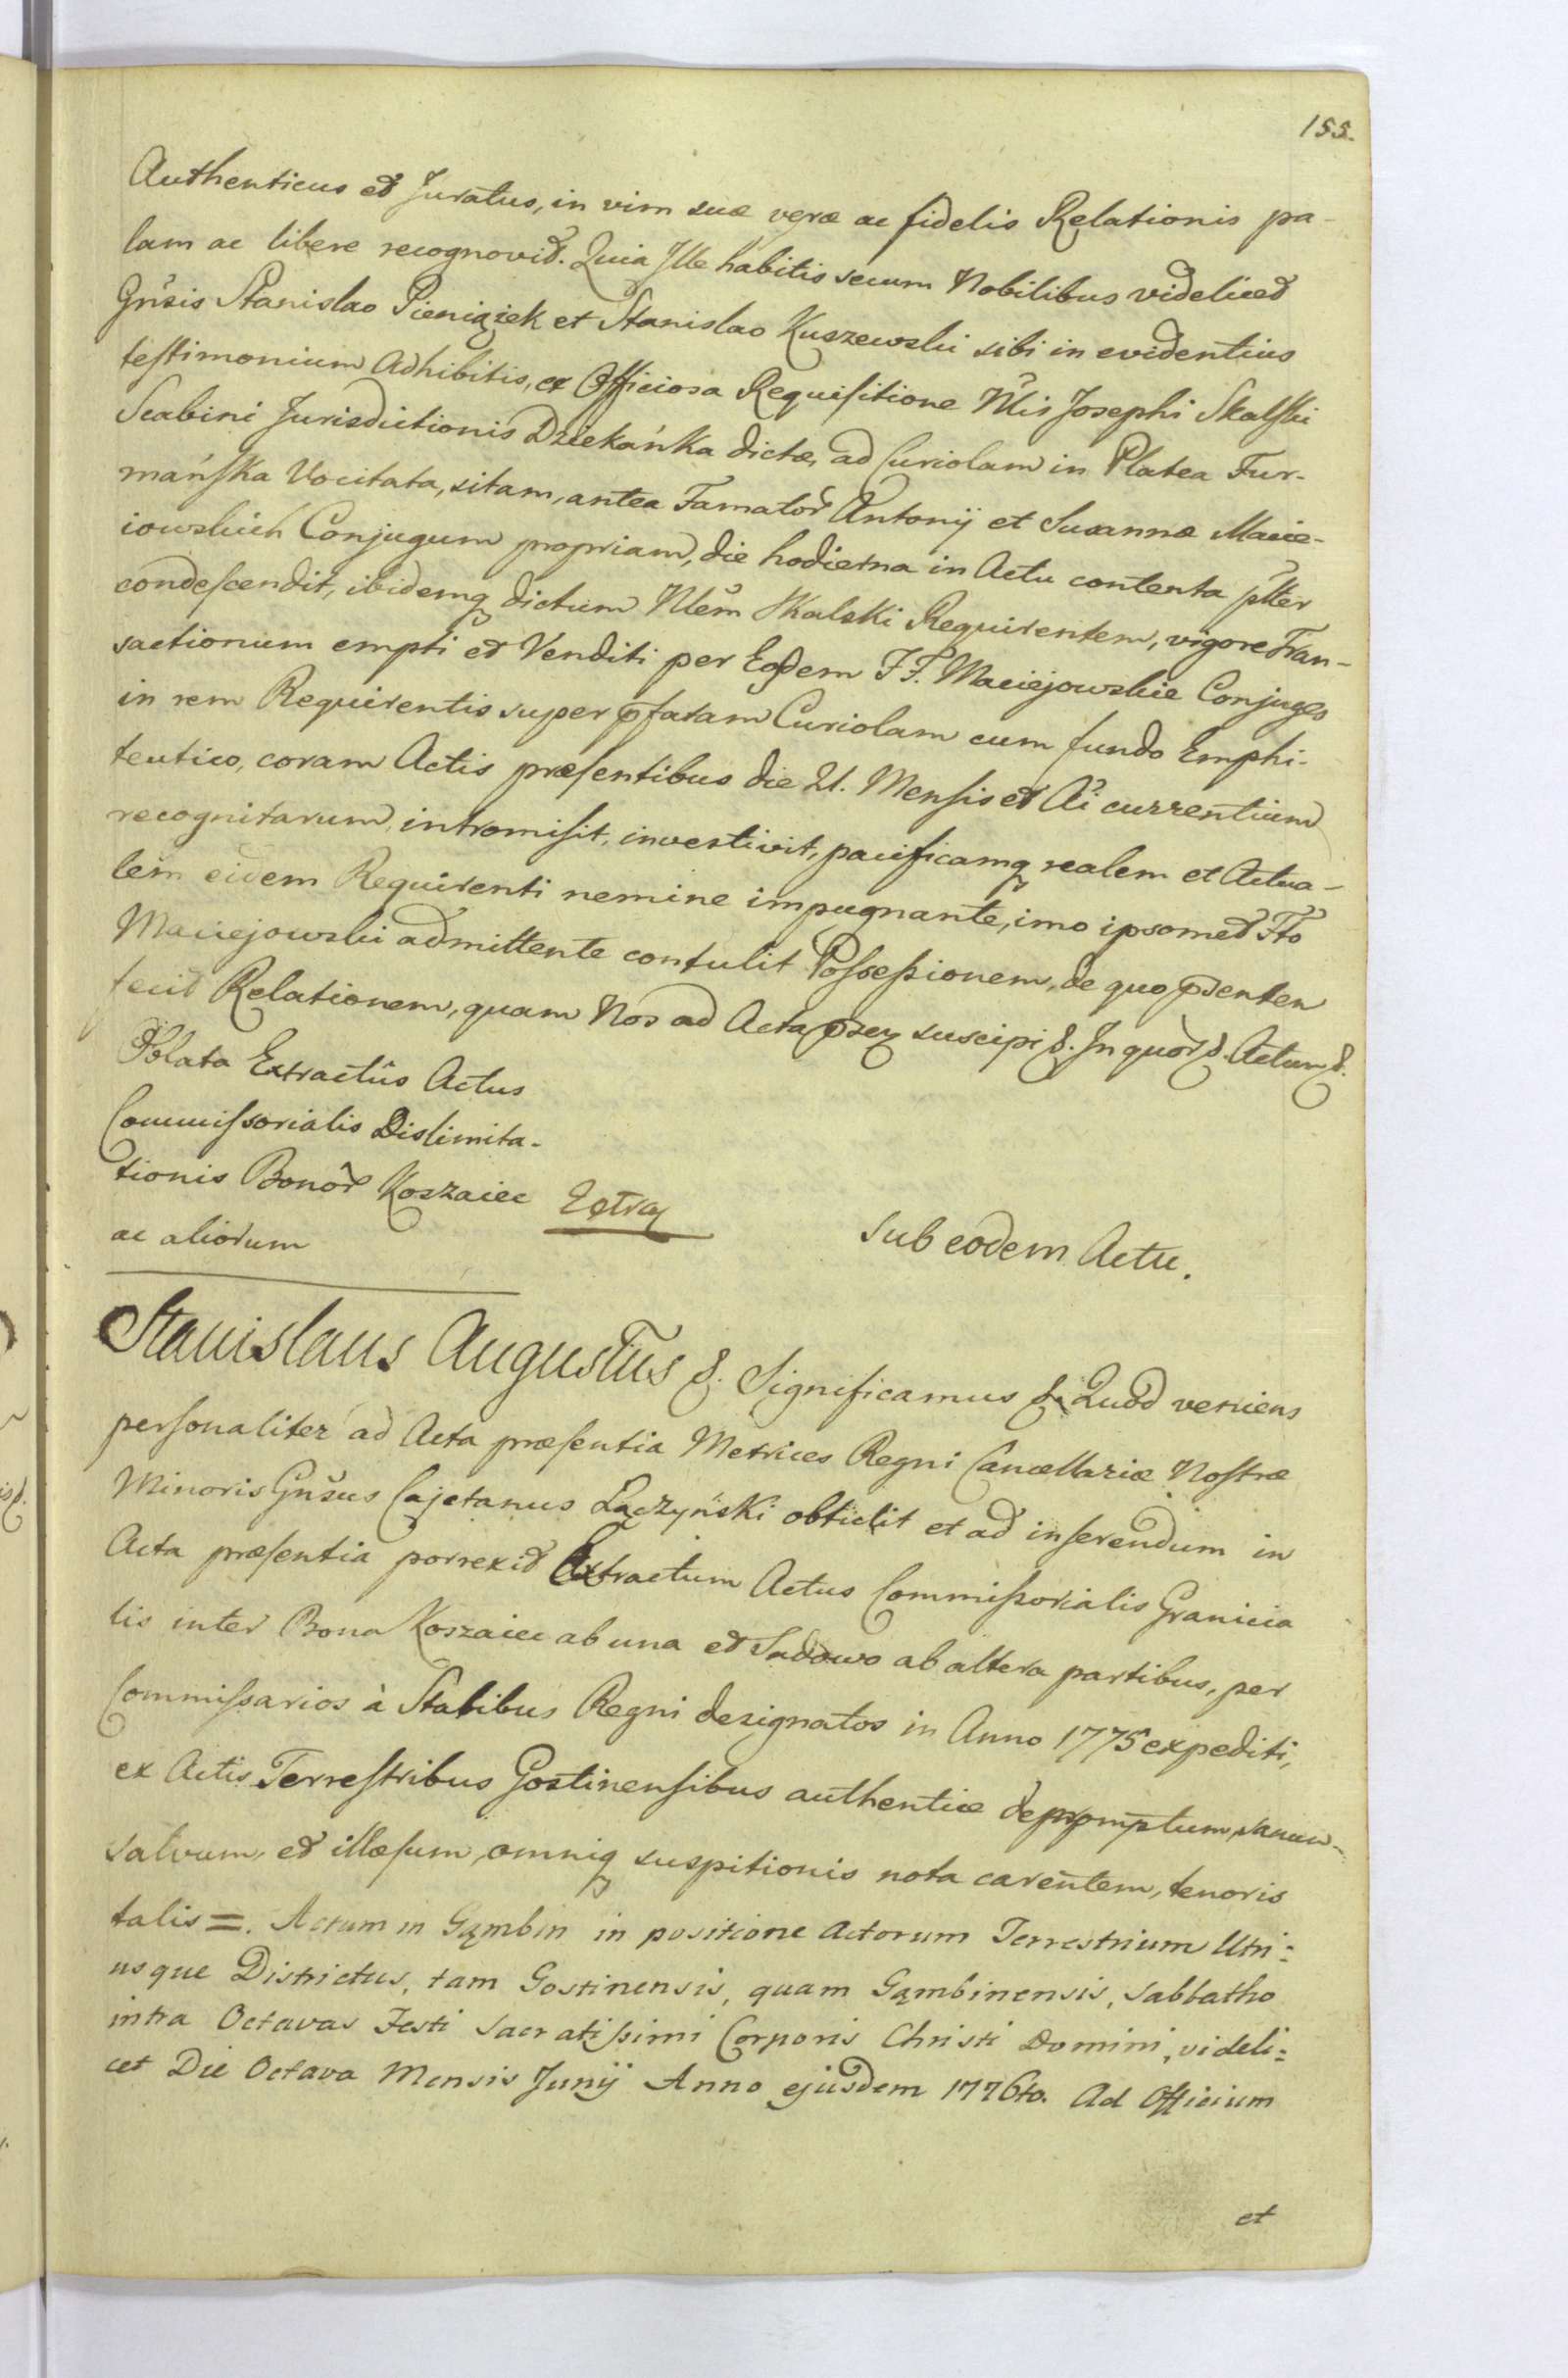 155.
Authenticus et Juratus, in vim suæ veræ ac fidelis Relationis pa-
lam ac libere recognovit. Quia Ille habitis secum Nobilibus videlicet
Gnsis Stanislao Pieniążek et Stanislao Kuszewski sibi in evidentius
testimonium adhibitis, ex Officiosa Requisitione Nlis Josephi Skalski
Scabini Jurisdictionis Dziekańka dictæ, ad Curiolam in Platea Fur-
mańska Vocitata, sitam, antea Famator Antonij et Susannæ Macie-
iowskich Conjugum propriam, die hodierna in Actu contenta pltter
condescendit, ibidemq dictum Nlem Skalski Requirentem, vigore Tran-
sactionum empti et Venditi per Eosdem FF. Maciejowskie Conjuges
in rem Requirentis super pfatam Curiolam cum fundo Emphi-
teutico, coram Actis præsentibus die 21. Mensis et Ai currentium
recognitarum, intromisit, investivit, pacificamq realem et Actua-
lem eidem Requirenti nemine impugnante, imo ipsomet Ftto
Maciejowski admittente contulit Possessionem, de quo psentem
fecit Relationem, quam Nos ad Acta psez suscipi &. In quor &. Actum &.
Oblata Extractûs Actus
Commissorialis Dislimita-
tionis Bonor Koszaiec
ac aliorum
Extra
Sub eodem Actu.
Stanislaus Augustus &. Significamus &. Quod veniens
personaliter ad Acta præsentia Metrices Regni Cancellariæ Nostræ
Minoris Gnsus Cajetanus Łączyński obtulit et ad inserendum in
Acta præsentia porrexit Extractum Actus Commissorialis Granicia
lis inter Bona Koszaiec ab una et Sadowo ab altera partibus, per
Commissarios à Statibus Regni designatos in Anno 1775 expediti,
ex Actis Terrestribus Gostinensibus authentice depromptum, sanum
salvum, et illæsum, omniq suspitionis nota carentem, tenoris
talis =. Actum in Gąmbin in positione Actorum Terrestrium Utri:
usque Districtus, tam Gostinensis, quam Gąmbinensis, Sabbatho
intra Octavas Festi Sacratissimi Corporis Christi Domini, videli:
cet Die Octava Mensis Junij Anno ejusdem 1776to. Ad Officium
et